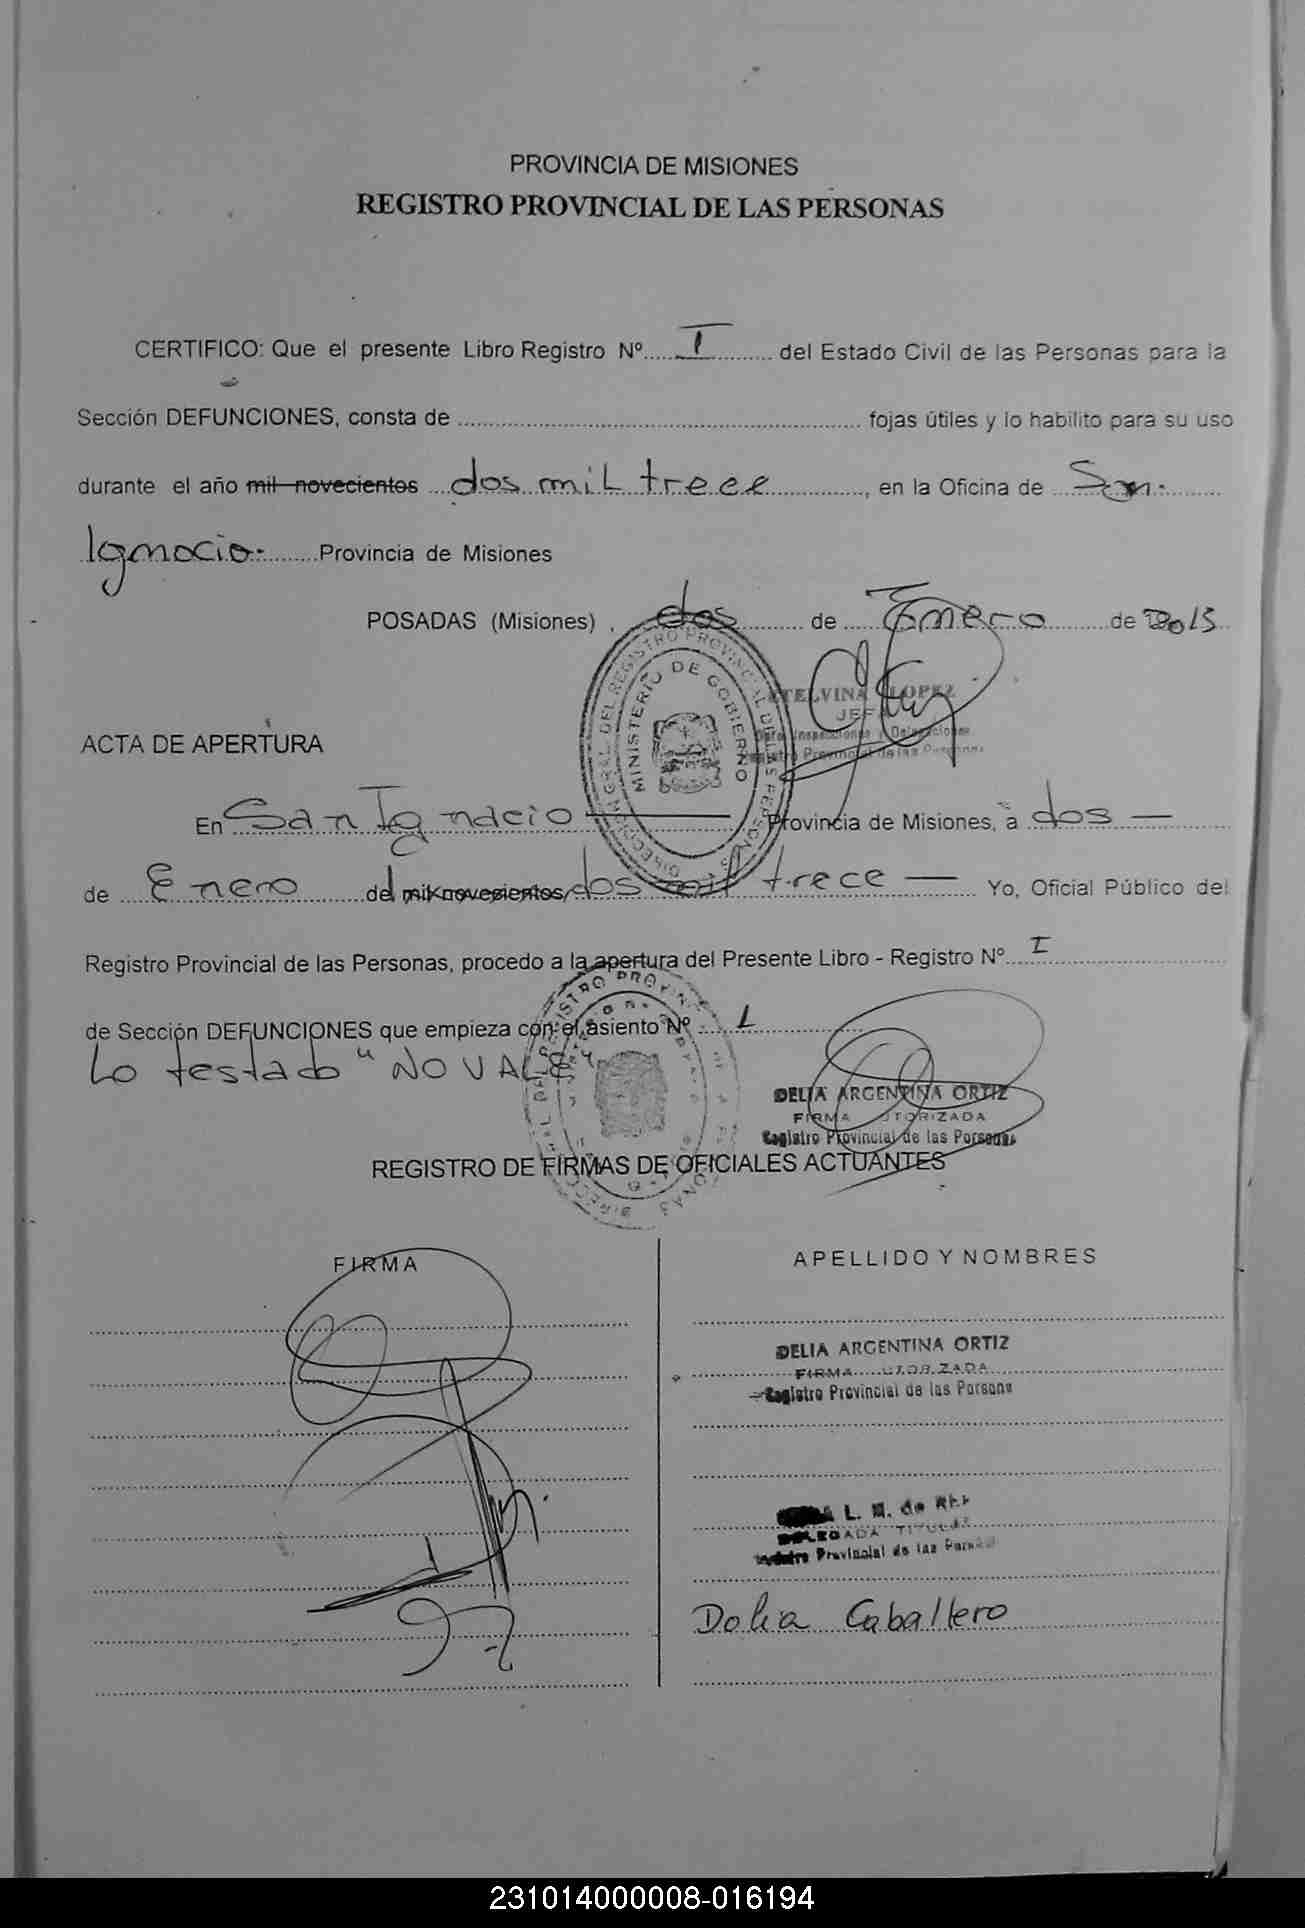 PROVINCIA DE MISIONES
REGISTRO PROVINCIAL DE LAS PERSONAS
CERTIFICO: Que el presente Libro Registro Nº I del Estado Civil de las Personas para la
Sección DEFUNCIONES, consta de fojas útiles y lo habilito para su uso
durante el año mil novecientos dos mil trece, en la Oficina de San
Ignacio. Provincia de Misiones
POSADAS (Misiones), dos de Enero de 2013
DIRECCION GRAL. DEL REGISTRO PROVINCIAL DE LAS PERSONAS
MINISTERIO DE GOBIERNO
ETELVINA LOPEZ
JEFA
Dpto. Inspecciones y Delegaciones
Registro Provincial de las Personas
ACTA DE APERTURA
En San Ignacio Provincia de Misiones, a dos —
de Enero del mil novecientos, dos mil trece — Yo, Oficial Público del
Registro Provincial de las Personas, procedo a la apertura del Presente Libro - Registro Nº I
de Sección DEFUNCIONES que empieza con el asiento Nº 1
Lo testado "NO VALE"
DELIA ARGENTINA ORTIZ
FIRMA AUTORIZADA
Registro Provincial de las Personas
REGISTRO DE FIRMAS DE OFICIALES ACTUANTES
FIRMA
APELLIDO Y NOMBRES
DELIA ARGENTINA ORTIZ
FIRMA AUTORIZADA
Registro Provincial de las Persona
L. M. de
DELEGADA TITULAR
Registro Provincial de las Personas
Delia Caballero
231014000008-016194